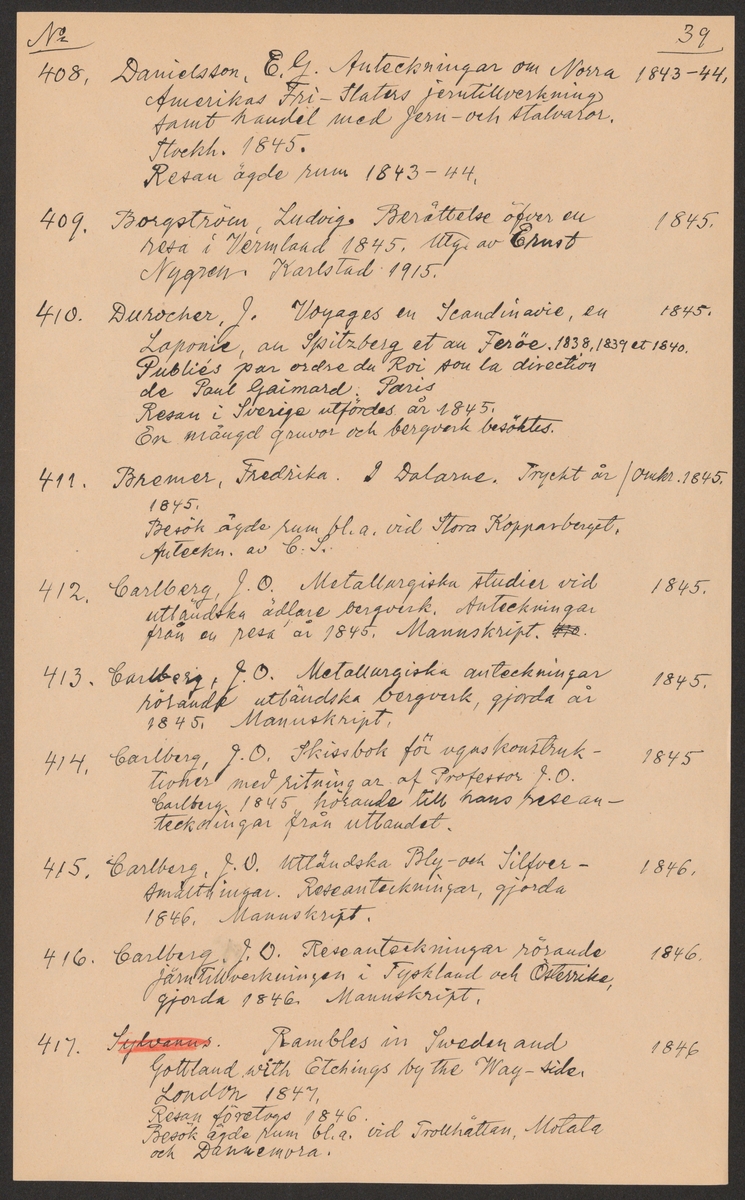 No 39
408. Danielsson, E.G. Anteckningar om Norra 1843-44.
Amerikas Fri-Staters jerntillverkning
samt handel med Jern- och stålvaror.
Stockh. 1845.
Resan ägde rum 1843-44.
409. Borgström, Ludvig. Berättelse öfver en 1845.
resa i Vermland 1845. Utg. av Ernst
Nygren. Karlstad 1915.
410. Durocher, J. Voyages en Scandinavie, en 1845.
Laponie, au Spitzberg et au Feröe. 1838, 1839 et 1840.
Publiés par ordre du Roi sou la direction
de Paul Gaimard. Paris
Resan i Sverige utfördes år 1845.
En mängd gruvor och bergverk besöktes.
411. Bremer, Fredrika. I Dalarne. Tryckt år / Omkr. 1845.
1845.
Besök ägde rum bl.a. vid Stora Kopparberget.
Anteckn. av C.S.
412. Carlberg, J.O. Metallurgiska studier vid 1845.
utländska ädlare bergverk. Anteckningar
från en resa år 1845. Manuskript.
413. Carlberg, J.O. Metallurgiska anteckningar 1845.
rörande utländska bergverk, gjorda år
1845. Manuskript.
414. Carlberg, J.O. Skissbok för ugnskonstruk- 1845
tioner med ritningar af Professor J.O.
Carlberg 1845, hörande till hans resean-
teckningar från utlandet.
415. Carlberg, J.O. Utländska Bly- och Silfver- 1846.
smältningar. Reseanteckningar, gjorda
1846. Manuskript.
416. Carlberg, J.O. Reseanteckningar rörande 1846.
järntillverkningen i Tyskland och Österrike,
gjorda 1846. Manuskript.
417. Sylvanus. Rambles in Sweden and 1846
Gottland with Etchings by the Way-side.
London 1847.
Resan företogs 1846.
Besök ägde rum bl.a. vid Trollhättan, Motala
och Dannemora.